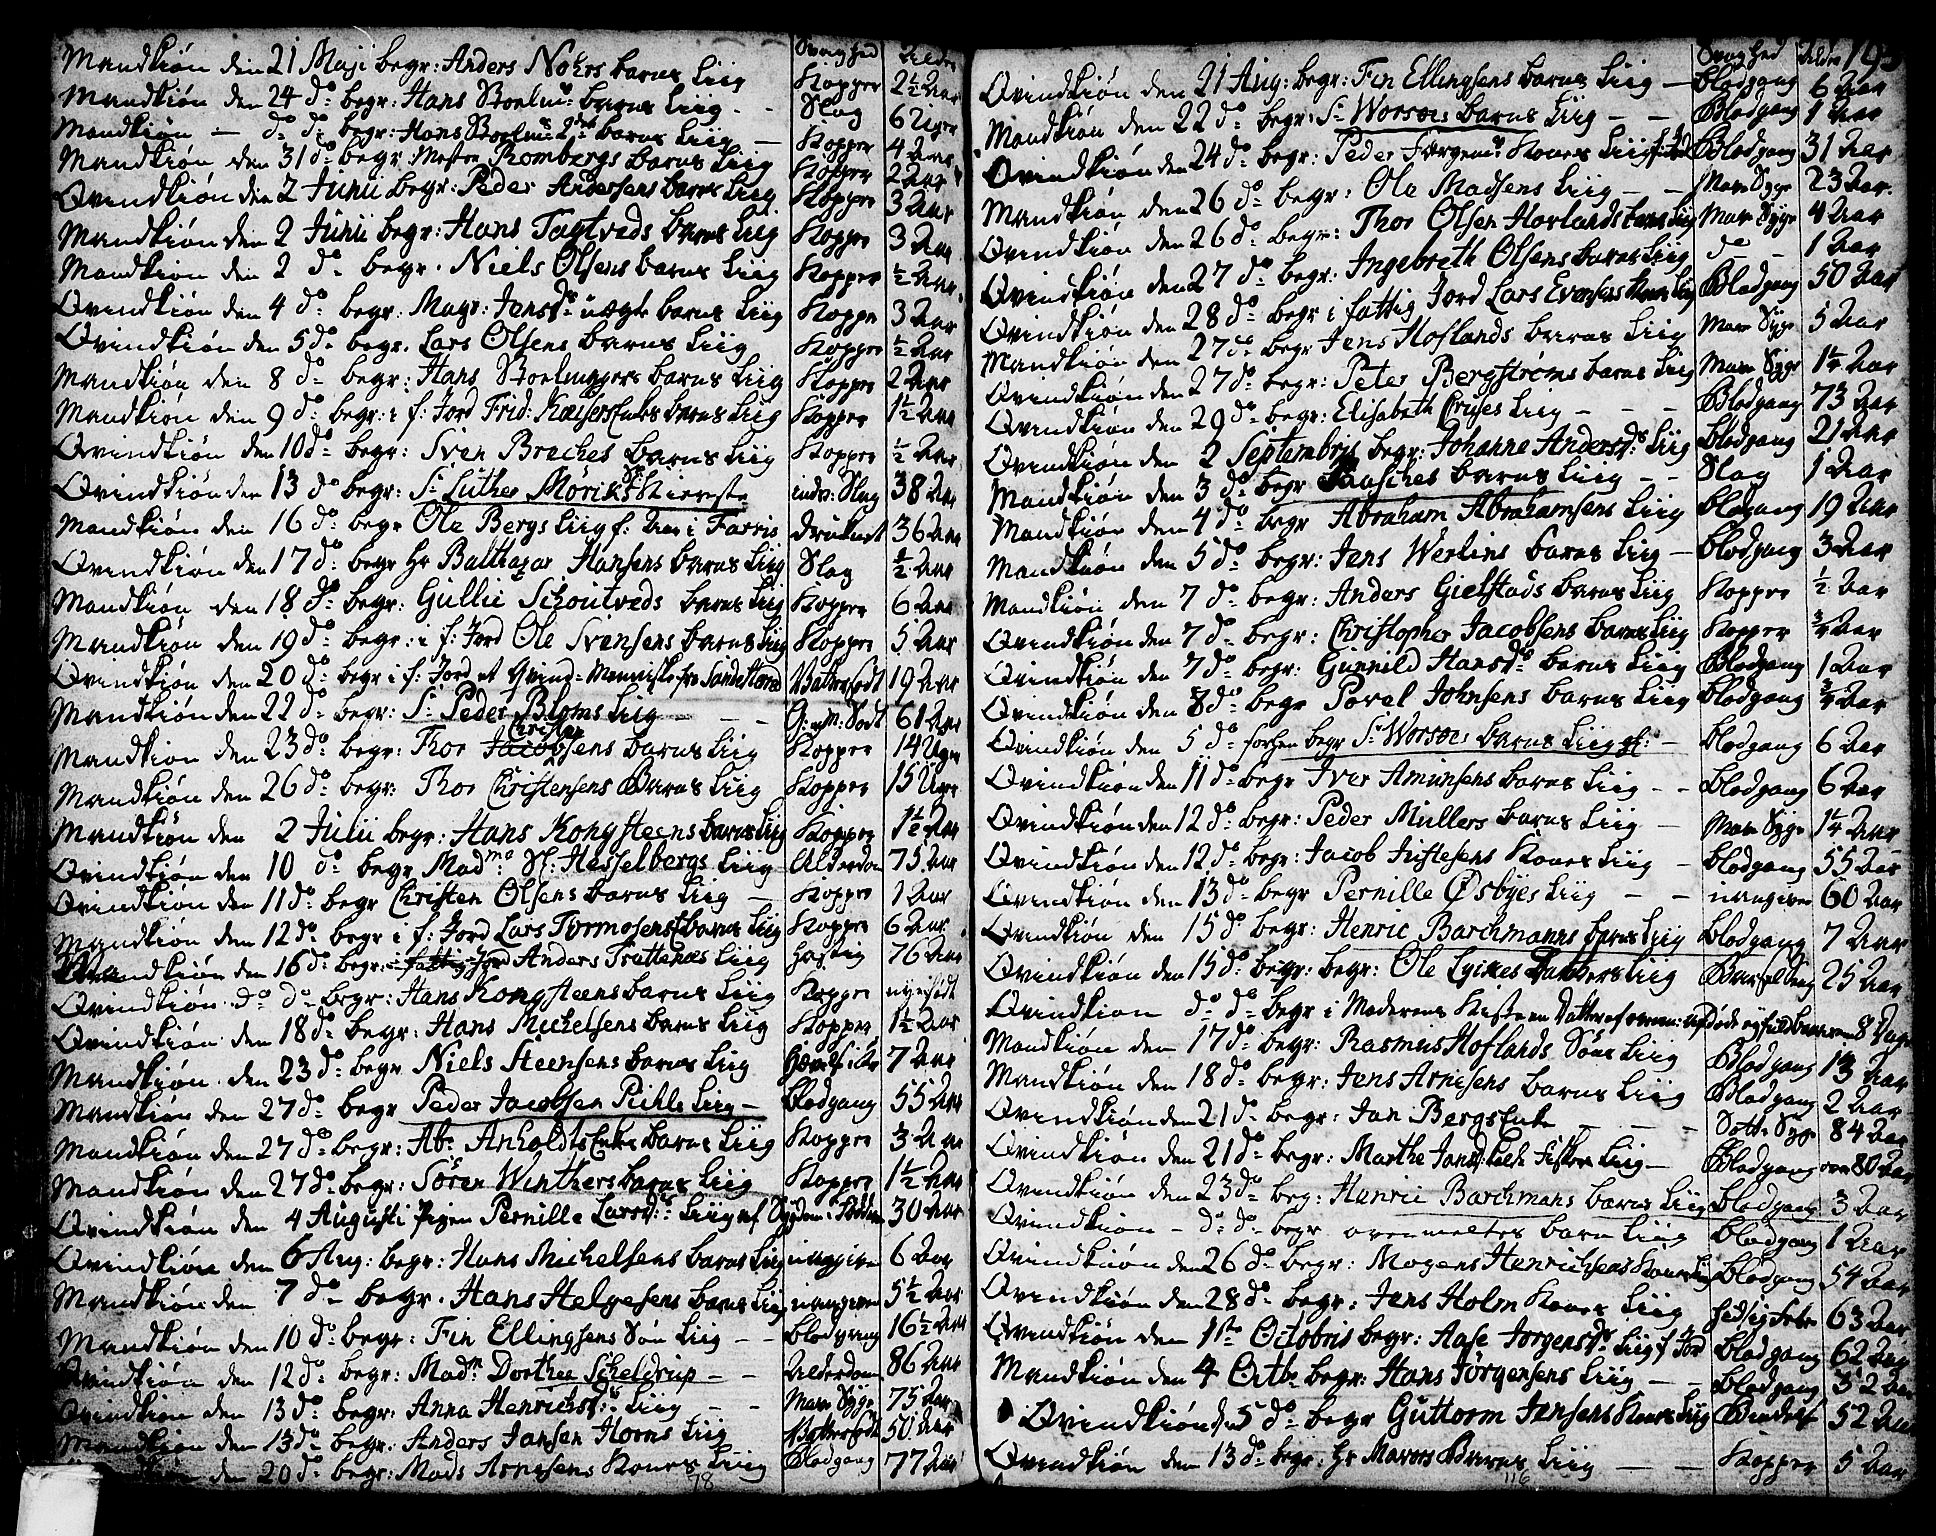 Svaghed Alder
Mandkiøn den 21 Maji begr: Anders Nøhrs barns Liig Kopper 2½ Aar
Mandkiøn den 24 do begr: Hans Stoelm: barns Liig - - Slag 6 Uger
Mandkiøn — do do begr: Hans Stoelm: 2det barns Liig — Kopper 4 Aar
Mandkiøn den 31 do begr: Mester Rombergs barns Liig Kopper 2 Aar
Qvindkiøn den 2 Junii begr: Peder Andersens barns Liig Kopper 3 Aar
Mandkiøn den 2 Junii begr: Hans Tagtveds barns Liig Kopper 3 Aar
Mandkiøn den 2 do begr. Niels Olsens barns Liig Kopper ½ Aar
Qvindkiøn den 4 do begr: Magr: Jensdr uægte barns Liig Kopper 3 Aar
Qvindkiøn den 5 do begr. Lars Olsens barns Liig Kopper ½ Aar
Mandkiøn den 8 do begr: Hans Stoelmagers barns Liig Kopper 2 Aar
Mandkiøn den 9 do begr: i f: Jord Frid: Kæisers Enkes barns Liig Kopper 1½ Aar
Qvindkiøn den 10 do begr: Sven Braches barns Liig Kopper ½ Aar
Qvindkiøn den 13 do begr: Sr Luther Møriks Kiereste indv: Slag 38 Aar
Mandkiøn den 16 do begr Ole Bergs Liig f: Aar i Farris Druknet 36 Aar
Qvindkiøn den 17 do begr Hr Balthazar Hansens barns Liig Slag ½ Aar
Mandkiøn den 18 do begr: Gullic Schoutveds barns Liig Kopper 6 Aar
Mandkiøn den 19 do begr: i f: Jord Ole Svensens barns Liig Kopper 5 Aar
Qvindkiøn den 20 do begr i f: Jord et Qvind-Menniske fra Sandeherred Vattersodt 19 Aar
Mandkiøn den 22 do begr: Sr Peder Bloms Liig - - - 61 Aar
Christen
Mandkiøn den 23 do begr: Thor Jacobsens barns Liig Kopper 14 Uger
Mandkiøn den 26 do begr: Thor Christensens Barns Liig Kopper 15 Uger
Mandkiøn den 2 Julii begr: Hans Kongsteens barns Liig Kopper 1½ Aar
Qvindkiøn den 10 do begr Madme Sl: Hasselbergs Liig Alderdom 75 Aar
Qvindkiøn den 11 do begr Christen Olsens barns Liig — Kopper 1 Aar
Mandkiøn den 12 do begr i f: Jord Lars Tormosens barns Liig Kopper 6 Aar
Mandkiøn den 16 do begr: i fattig Jord Anders Trattenæs Liig Hastig 76 Aar
Qvindkiøn do do begr: Hans Kongsteens barns Liig Kopper nyefødt
Qvindkiøn den 18 do begr: Hans Michelsens barns Liig Kopper 1½ Aar
Mandkiøn den 23 do begr Niels Steensens barns Liig 7 Aar
Mandkiøn den 27 do begr Peder Jacobsen Pihls Liig — Blodgang 55 Aar
Mandkiøn den 27 do begr: Abr. Anholdts Enkes barns Liig Kopper 3 Aar
Mandkiøn den 27 do begr: Søren Winthers barns Liig Kopper 1½ Aar
Qvindkiøn den 4 Augusti Pigen Pernille Larsdr: Liig af Sygdom i 30 Aar
Qvindkiøn den 6 Aug: begr: Hans Michelsens barns Liig inangiven 6 Aar
Mandkiøn den 7 do begr. Hans Helgesens barns Liig inangiven 5½ Aar
Mandkiøn den 10 do begr: Fin Ellingsens Søn Liig - - Blodgang 16½ Aar
Qvindkiøn den 12 do begr: Madm Dorthea Scheldrup - - Alderdom 86 Aar
Qvindkiøn den 13 do begr: Anna Henrichsdr: Liig - - Mave Syge 75 Aar
Mandkiøn den 13 do begr: Anders Jansen Horns Liig Vattersodt 50 Aar
den 20 do begr: Mads Arnesens Kones Liig Blodgang 77 Aar
78
Svaghed Alder 195
Qvindkiøn den 21 Aug: begr: Fin Ellingsens barns Liig — Blodgang 6 Aar
Mandkiøn den 22 do begr: Sr Worsøes barns Liig - - Blodgang 1 Aar
Qvindkiøn den 24 do begr: Peder Færgem: Kones Liig f: Jord Blodgang 31 Aar
Mandkiøn den 26 do begr: Ole Madsens Liig - - Mave Syge 23 Aar
Qvindkiøn den 26 do begr: Thor Olsen Hovlands barns Liig Mave Syge 4 Aar
Qvindkiøn den 27 do begr: Ingebreth Olsens barns Liig do - 1 Aar
Qvindkiøn den 28 do begr i fattig Jord Lars Evensens Kones Liig Blodgang 50 Aar
Mandkiøn den 27 do begr Jens Hoflands barns Liig Mave Syge 5 Aar
Qvindkiøn den 27 do begr: Peter Bergstrøms barns Liig Mave Syge 1¼ Aar
Qvindkiøn den 29 do begr: Elisabeth Cruses Liig - - - Blodgang 73 Aar
Qvindkiøn den 2 Septembris begr: Johanne Andersdr: Liig Blodgang 21 Aar
Mandkiøn den 3 do begr Paasches barns Liig - - Slag 1 Aar
Mandkiøn den 4 do begr Abraham Abrahamsens Liig Blodgang 19 Aar
Mandkiøn den 5 do begr: Jens Werlins barns Liig — Blodgang 3 Aar
Mandkiøn den 7 do begr: Anders Gielstads barns Liig Kopper ½ Aar
Qvindkiøn den 7 do begr: Christopher Jacobsens barns Liig Kopper ¾ Aar
Qvindkiøn den 7 do begr: Gunnild Hansdr barns Liig Blodgang 1 Aar
Qvindkiøn den 8 do begr Povel Johnsens barns Liig Blodgang ¾ Aar
Qvindkiøn den 5 do forhen begr Sr Worsøes barns Liig — Blodgang 6 Aar
Qvindkiøn den 11 do begr Iver Amunsens barns Liig - - Blodgang 6 Aar
Qvindkiøn den 12 do begr: Peder Mullers barns Liig — Mave Syge 1¼ Aar
Qvindkiøn den 12 do begr: Jacob Justesens Kones Liig - Blodgang 55 Aar
Qvindkiøn den 13 do begr Pernille Øsbyes Liig - - inangiven 60 Aar
Qvindkiøn den 15 do begr: Henric Barchmanns barns Liig Blodgang 7 Aar
Qvindkiøn den 15 do begr: begr: Ole Lykkes Liig Barselseng 25 Aar
Qvindkiøn do do begr i Moderens Kiste en Datter 8 Dage
Mandkiøn den 17 do begr: Rasmus Hoflands Søns Liig Blodgang 13 Aar
Mandkiøn den 18 do begr: Jens Arnesens barns Liig Blodgang 2 Aar
Qvindkiøn den 21 do begr: Jan Bergs Enke - - - Sotte Syge 84 Aar
Qvindkiøn den 21 do begr: Marthe Jansdr Liig — Blodgang over 80 Aar
Qvindkiøn den 23 do beg: Henric Barchmans barns Liig Blodgang 3 Aar
Qvindkiøn - do do begr ovenmeltes barn Liig Blodgang 1 Aar
Qvindkiøn den 26 do begr: Mogens Henrichsens Kones Liig Blodgang 54 Aar
Qvindkiøn den 28 do begr: Jens Holm Kones Liig hedsig Feber 63 Aar
Qvindkiøn den 1ste Octobris begr: Aase Jørgensdr: Liig f: Jord Blodgang 62 Aar
Mandkiøn den 4 Octb: begr: Hans Jørgensens Liig - - Blodgang 32 Aar
Qvindkiøn den 5 do begr Guttorm Jensens Kones Liig 52 Aar
Qvindkiøn den 13 do begr: Hr Mavors Barns Liig - - Kopper 5 Aar
116